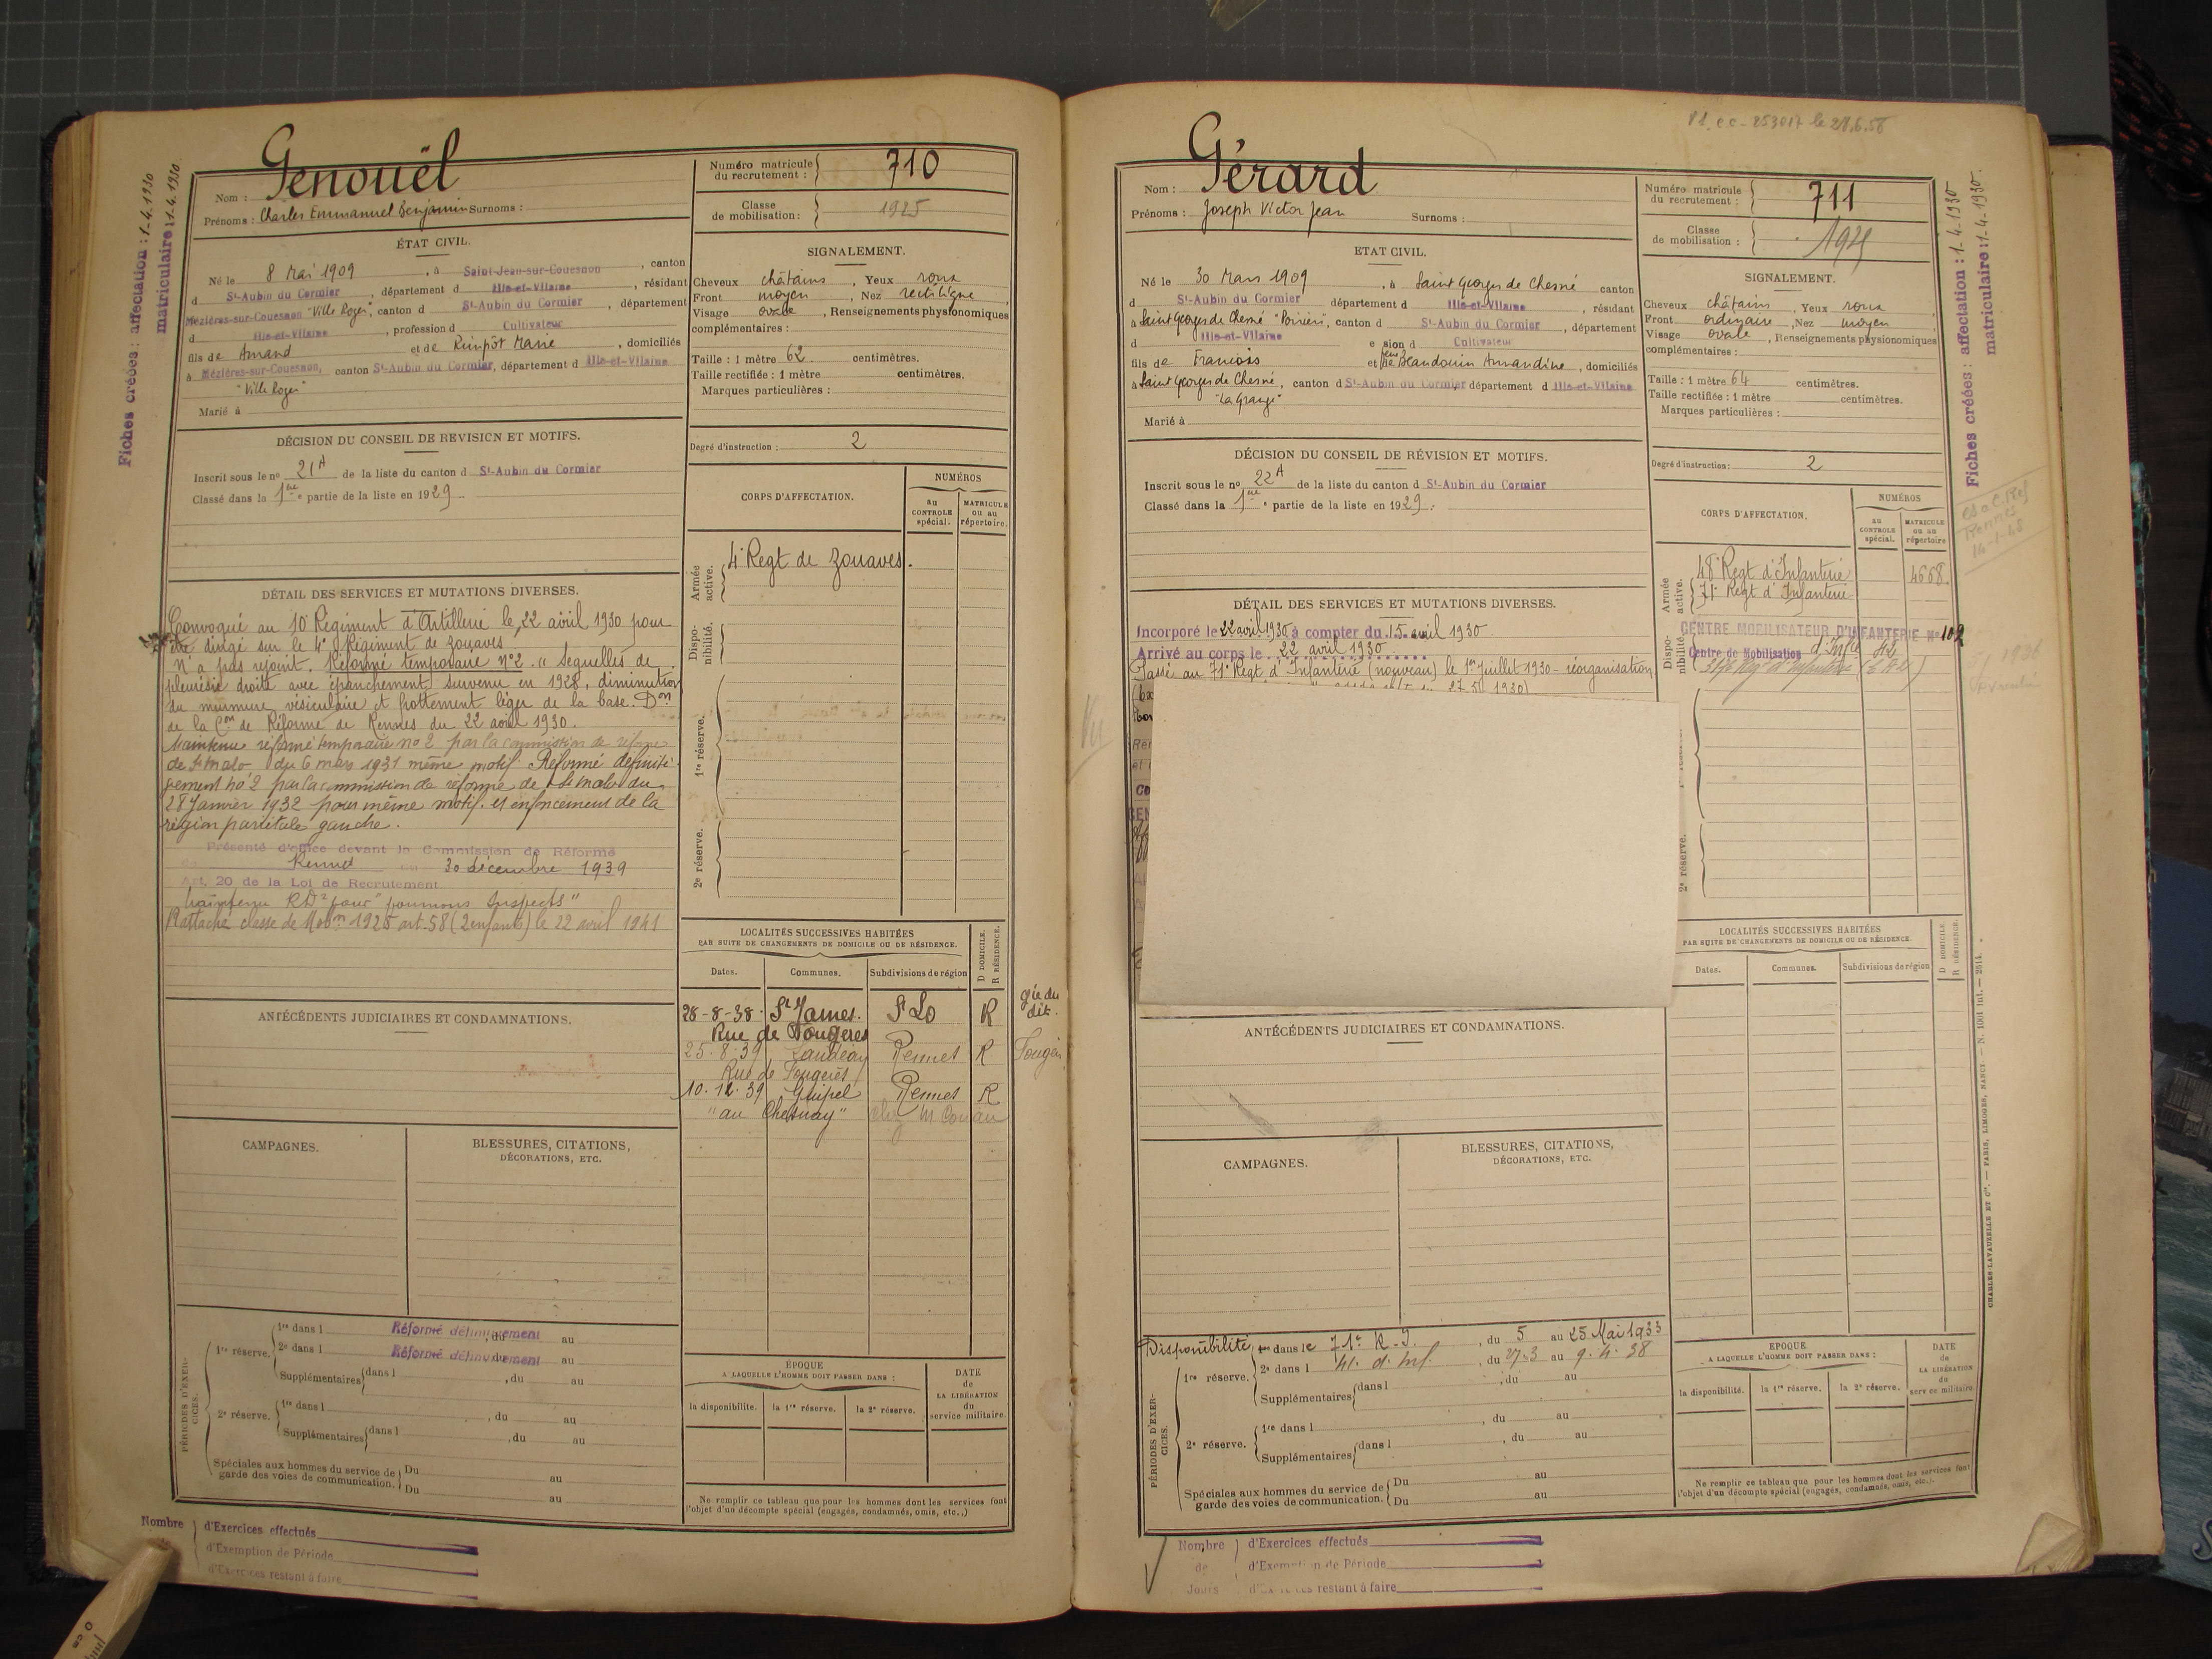 Fiches créées : affectation : 1-4-1930
matriculaire : 1-4-1930
Nom : Genouël
Prénoms : Charles Emmanuel Benjamin Surnoms :
Numéro matricule du recrutement : 710
Classe de mobilisation : 1925
ÉTAT CIVIL.
Né le 8 Mai 1909, à Saint-Jean-sur-Couesnon, canton
d St-Aubin du Cormier, département d Ille-et-Vilaine, résidant
Mézières-sur-Couesnon "Ville Roger", canton d St-Aubin du Cormier, département
d Ille-et-Vilaine, profession d Cultivateur
fils de Amand et de Rimpôt Marie, domiciliés
à Mézières-sur-Couesnon, canton St-Aubin du Cormier, département d Ille-et-Vilaine
"Ville Roger"
Marié à
SIGNALEMENT.
Cheveux châtains, Yeux roux
Front moyen, Nez rectiligne
Visage ovale, Renseignements physionomiques
complémentaires :
Taille : 1 mètre 62 centimètres.
Taille rectifiée : 1 mètre centimètres.
Marques particulières :
Degré d'instruction : 2
DÉCISION DU CONSEIL DE REVISION ET MOTIFS.
Inscrit sous le no 21A de la liste du canton d St-Aubin du Cormier
Classé dans la 1ère partie de la liste en 1929.
CORPS D'AFFECTATION.
NUMÉROS
au CONTROLE spécial.
MATRICULE ou au répertoire.
Armée active.
4e Regt de Zouaves.
Disponibilité.
1re réserve.
2e réserve.
DÉTAIL DES SERVICES ET MUTATIONS DIVERSES.
Convoqué au 10e Régiment d'Artillerie le 22 avril 1930 pour
être dirigé sur le 4e Régiment de zouaves
N'a pas rejoint. Réformé temporaire n°2. "Sequelles de
pleurésie droite avec épanchement survenu en 1928, diminution
du murmure vésiculaire et frottement léger de la base. Don
de la Con de Réforme de Rennes du 22 avril 1930.
Maintenu réformé temporaire no 2 par la commission de réforme
de St Malo du 6 mars 1931 même motif. Réformé définiti-
vement no 2 par la commission de réforme de St Malo du
28 Janvier 1932 pour même motif. et enfoncement de la
région pariétale gauche.
Présenté d'office devant la Commission de Réforme
de Rennes 30 décembre 1939
Art. 20 de la Loi de Recrutement
Maintenu RD2 pour "poumons suspects"
Rattaché classe de Mobon 1925 art. 58 (2 enfants) le 22 avril 1941
LOCALITÉS SUCCESSIVES HABITÉES
PAR SUITE DE CHANGEMENTS DE DOMICILE OU DE RÉSIDENCE.
D DOMICILE. R RÉSIDENCE.
Dates. Communes. Subdivisions de région
28-8-38. St James. St Lo R gie du dit.
Rue de Fougères
25.8.39 Landéan Rennes R
Rue de Fougères
10.12.39 Guipel Rennes R
"au Chesnay" chez M
ANTÉCÉDENTS JUDICIAIRES ET CONDAMNATIONS.
CAMPAGNES.
BLESSURES, CITATIONS, DÉCORATIONS, ETC.
PÉRIODES D'EXERCICES.
1re réserve. 1re dans l Réformé définitivement, du au
2e dans l Réformé définitivement, du au
Supplémentaires dans l , du au
2e réserve. 1re dans l , du au
Supplémentaires dans l , du au
Spéciales aux hommes du service de garde des voies de communication. Du au
Du au
ÉPOQUE
A LAQUELLE L'HOMME DOIT PASSER DANS :
la disponibilité. la 1re réserve. la 2e réserve.
DATE de LA LIBÉRATION du service militaire.
Ne remplir ce tableau que pour les hommes dont les services font
l'objet d'un décompte spécial (engagés, condamnés, omis, etc.,)
Nombre
d'Exercices effectués
d'Exemption de Période
d'Exercices restant à faire
0 cm
P1.CC-253017 le 21.6.56
Nom : Gérard
Prénoms : Joseph Victor Jean Surnoms :
Numéro matricule du recrutement : 711
Classe de mobilisation : 1929
Fiches créées : affectation : 1-4-1930
matriculaire : 1-4-1930.
ETAT CIVIL.
Né le 30 Mars 1909, à Saint Georges de Chesné canton
d St-Aubin du Cormier département d Ille-et-Vilaine, résidant
à Saint Georges de Chesné "Poirier", canton d St-Aubin du Cormier, département
d Ille-et-Vilaine e sion d Cultivateur
fils de François et feue de Beaudouin Amandine, domiciliés
à Saint Georges de Chesné, canton d St-Aubin du Cormier département d Ille-et-Vilaine
"La Grange"
Marié à
SIGNALEMENT.
Cheveux châtains, Yeux roux
Front ordinaire, Nez moyen
Visage ovale, Renseignements physionomiques
complémentaires :
Taille : 1 mètre 64 centimètres.
Taille rectifiée : 1 mètre centimètres.
Marques particulières :
Degré d'instruction : 2
DÉCISION DU CONSEIL DE RÉVISION ET MOTIFS.
Inscrit sous le no 22A de la liste du canton d St-Aubin du Cormier
Classé dans la 1ère partie de la liste en 1929.
CORPS D'AFFECTATION.
NUMÉROS
au CONTROLE spécial.
MATRICULE ou au répertoire
Rennes
14-1-48
Armée active.
48e Regt d'Infanterie 4668
71e Regt d'Infanterie
Disponibilité.
CENTRE MOBILISATEUR D'INFANTERIE No 102
Centre de Mobilisation d'Infie
2e réserve.
DÉTAIL DES SERVICES ET MUTATIONS DIVERSES.
Incorporé le 22 avril 1930 à compter du 15 avril 1930.
Arrivé au corps le 22 avril 1930
Passé au 71e Regt d'Infanterie (nouveau) le 1er Juillet 1930 - réorganisation
27.5.1930)
Vu
LOCALITÉS SUCCESSIVES HABITÉES
PAR SUITE DE CHANGEMENTS DE DOMICILE OU DE RÉSIDENCE.
D DOMICILE. R RÉSIDENCE.
Dates. Communes. Subdivisions de région
ANTÉCÉDENTS JUDICIAIRES ET CONDAMNATIONS.
CAMPAGNES.
BLESSURES, CITATIONS, DÉCORATIONS, ETC.
PÉRIODES D'EXERCICES.
Disponibilité 1re dans le 71e R.I., du 5 au 25 Mai 1933
1re réserve. 2e dans l 41. d'Inf., du 27-3 au 9.4.38
Supplémentaires dans l , du au
2e réserve. 1re dans l , du au
Supplémentaires dans l , du au
Spéciales aux hommes du service de garde des voies de communication. Du au
Du au
EPOQUE
A LAQUELLE L'HOMME DOIT PASSER DANS :
la disponibilité. la 1re réserve. la 2e réserve.
DATE de LA LIBÉRATION du service militaire.
Ne remplir ce tableau que pour les hommes dont les services font
l'objet d'un décompte spécial (engagés, condamnés, omis, etc.).
CHARLES-LAVAUZELLE ET Cie. — PARIS, LIMOGES, NANCY. — N. 1001 int. — 2514.
Nombre de Jours
d'Exercices effectués
d'Exemption de Période
d'Exercices restant à faire